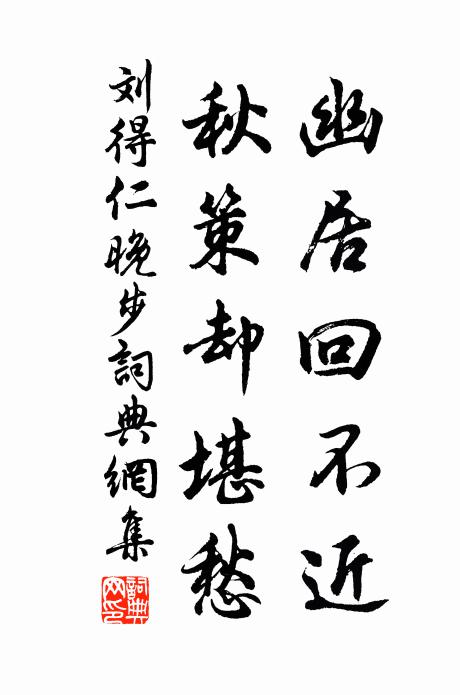 幽居回不近
秋策却堪愁
刘得仁晚步詞典網集
詞典网印